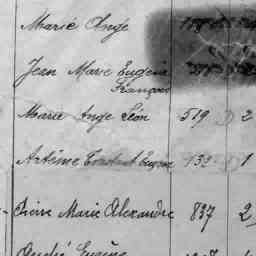 Marie Ange
Jean Marie Eugène
François
Marie Ange Léon 519 D 2
Artème Constant 139 D 1
Pierre Marie Alexandre 837 2
André Eugène